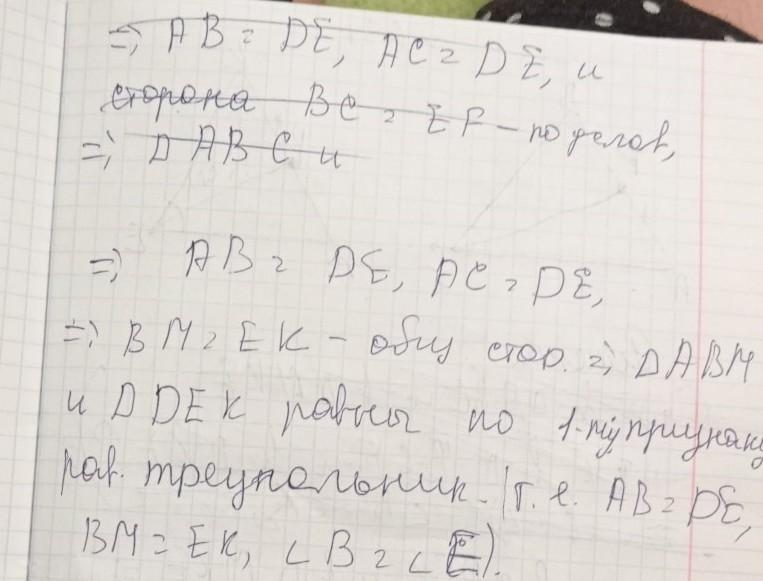 => AB = DE, AC = DE, и
сторона BC = EF - по услов,
=> Δ ABC и
=> AB = DE, AC = DE,
=> BM = EK - общ стор. => Δ ABM
и Δ DEK равны по 1-му признаку
рав. треугольник. (т. е. AB = DE,
BM = EK, ∠B = ∠E).